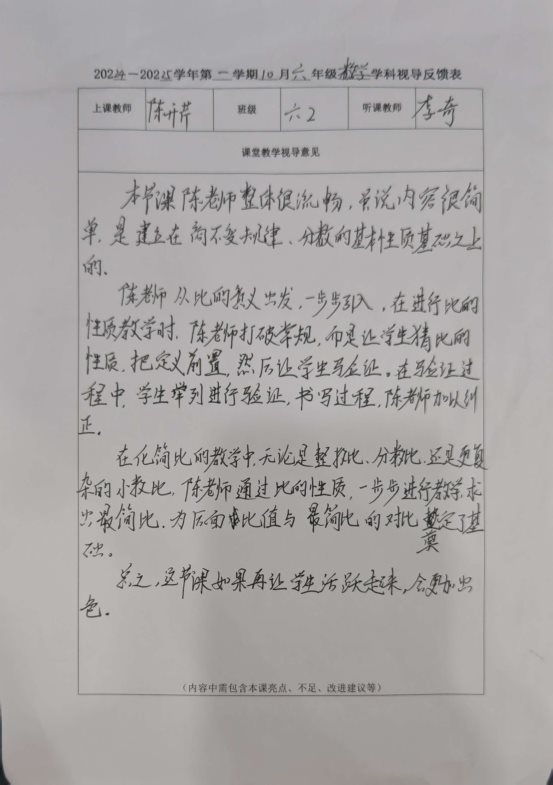 2024-2025学年第一学期10月六年级数学学科视导反馈表
上课教师 陈开芹 班级 六2 听课教师 李奇
课堂教学视导意见
本节课陈老师整体很流畅,虽说内容很简
单,是建立在商不变规律、分数的基本性质基础之上
的、
陈老师从比的意义出发,一步步引入,在进行比的
性质教学时,陈老师打破常规,而是让学生猜比的
性质,把定义前置,然后让学生写验证。在验证过
程中,学生举列进行验证,书写过程,陈老师加以纠
正。
在化简比的教学中,无论是整数比、分数比、还是更复
杂的小数比,陈老师通过比的性质,一步步进行教学,求
出最简比,为后面比值与最简比的对比奠定了基
础。
总之,这节课如果再让学生活跃起来,会更加出
色。
(内容中需包含本课亮点、不足、改进建议等)